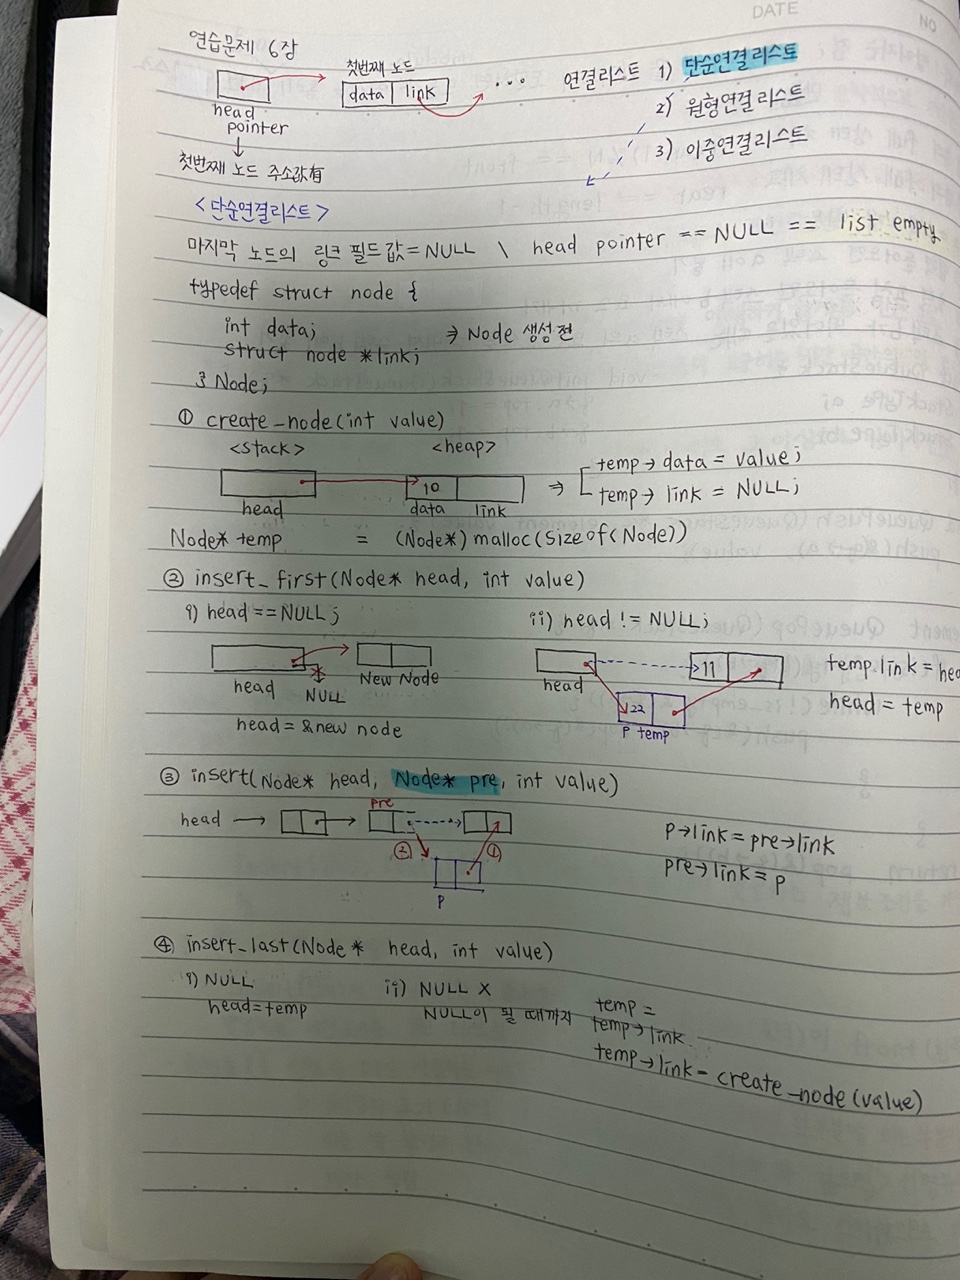 DATE
NO
연습문제 6장
첫번째 노드
data link
...
head
pointer
첫번째 노드 주소값有
연결리스트 1) 단순연결리스트
2) 원형연결리스트
3) 이중연결리스트
<단순연결리스트>
마지막 노드의 링크 필드값=NULL \ head pointer == NULL == list empty
typedef struct node {
int data; ⇒ Node 생성전
struct node *link;
} Node;
① create_node(int value)
<stack> <heap>
10
head data link
⇒ temp→data = value;
temp→link = NULL;
Node* temp = (Node*) malloc(sizeof(Node))
② insert_first(Node* head, int value)
i) head==NULL; ii) head != NULL;
head NULL New Node
head = &new node
head 11
22
P temp
temp.link = hea
head = temp
③ insert(Node* head, Node* pre, int value)
pre
head →
② ①
P
p→link = pre→link
pre→link = p
④ insert_last(Node* head, int value)
i) NULL ii) NULL X
head=temp NULL이 될 때까지 temp =
temp→link
temp→link = create_node(value)